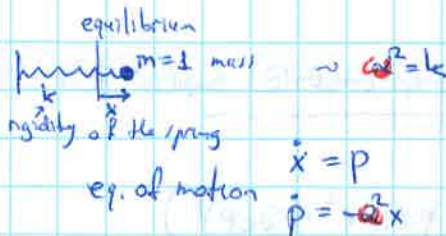 equilibrium
m=1 mass ~ ω²=k
k x
rigidity of the spring
ẋ = p
eq. of motion ṗ = -ω²x